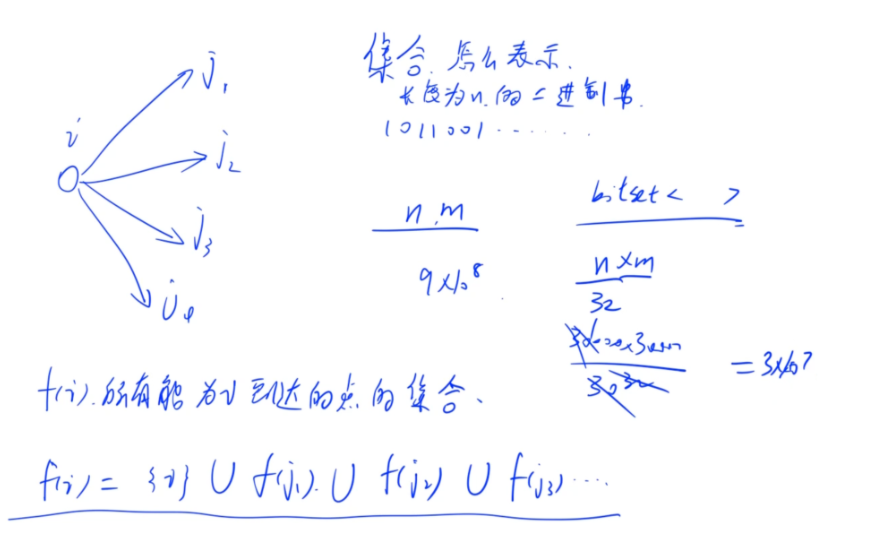 i
j₁
j₂
j₃
j₄
集合.怎么表示.
长度为n.的二进制串.
1011001......
n.m
9×10⁸
bitset< >
n×m
32
30000×30000
30
= 3×10⁷
f(i).所有能为i到达的点的集合.
f(i) = {i} ∪ f(j₁).∪ f(j₂) ∪ f(j₃)....